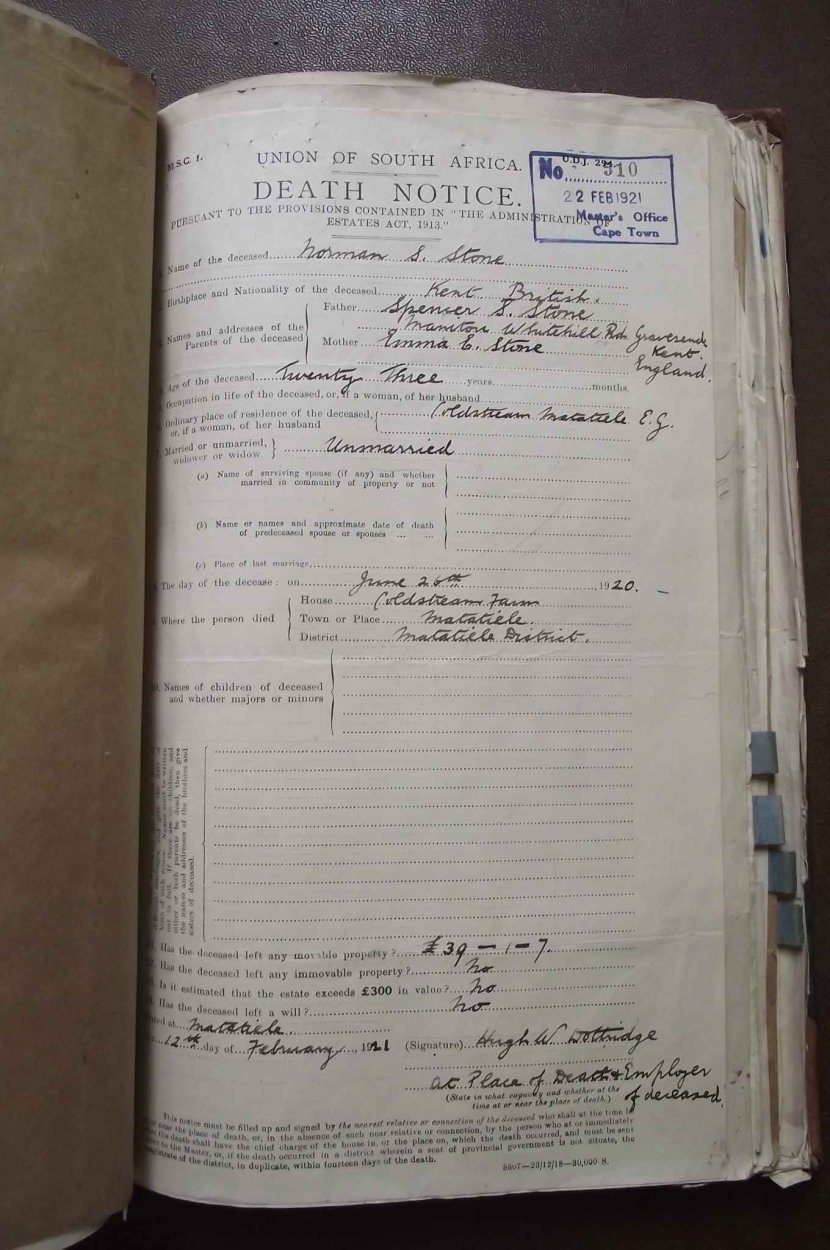 M.S.C. 1.
UNION OF SOUTH AFRICA.
U.D.J. 294.
No 310
22 FEB 1921
Master's Office
Cape Town
DEATH NOTICE.
PURSUANT TO THE PROVISIONS CONTAINED IN "THE ADMINISTRATION OF
ESTATES ACT, 1913."
Name of the deceased Norman S. Stone
Birthplace and Nationality of the deceased Kent British.
Names and addresses of the
Parents of the deceased
Father Spencer S. Stone
Manitou Whitehill Rd. Gravesend
Kent.
England.
Mother Emma E. Stone
Age of the deceased Twenty Three years months.
Occupation in life of the deceased, or, if a woman, of her husband
Ordinary place of residence of the deceased,
or, if a woman, of her husband
Coldstream Matatiele E.G.
Married or unmarried,
widower or widow
Unmarried
(a) Name of surviving spouse (if any) and whether
married in community of property or not
(b) Name or names and approximate date of death
of predeceased spouse or spouses ... ...
(c) Place of last marriage
The day of the decease: on June 26th 1920.
Where the person died
House Coldstream Farm
Town or Place Matatiele.
District Matatiele District.
10. Names of children of deceased
and whether majors or minors
out in full. If there are no children, and
either or both parents be dead, then give
the names and addresses of the brothers and
sisters of deceased.
Has the deceased left any movable property? £39-1-7.
Has the deceased left any immovable property? No
Is it estimated that the estate exceeds £300 in value? No
Has the deceased left a will? No
Dated at Matatiele.
12th day of February, 1921
(Signature) Hugh W Dottridge
at Place of Death & Employer
of deceased.
(State in what capacity and whether at the
time at or near the place of death.)
This notice must be filled up and signed by the nearest relative or connection of the deceased who shall at the time be
near the place of death, or, in the absence of such near relative or connection, by the person who at or immediately
the death shall have the chief charge of the house in, or the place on, which the death occurred, and must be sent
to the Master, or, if the death occurred in a district wherein a seat of provincial government is not situate, the
Magistrate of the district, in duplicate, within fourteen days of the death.
5807—23/12/18—30,000 S.